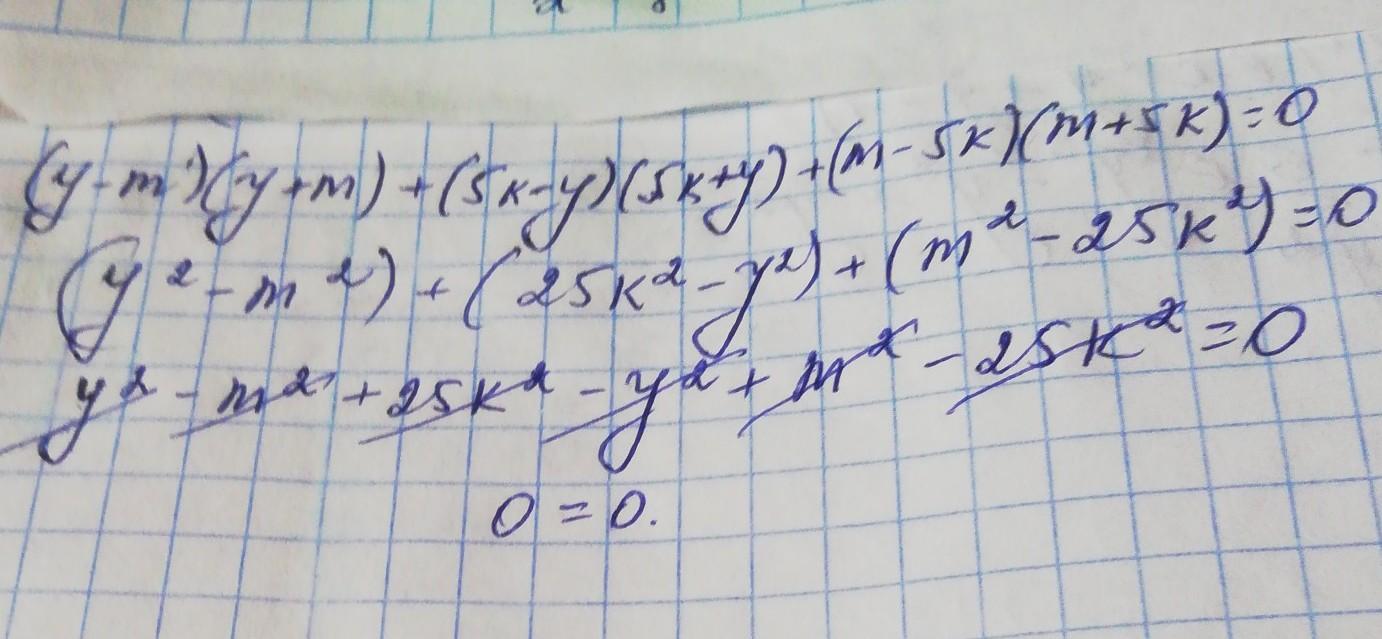 (y-m)(y+m)+(5k-y)(5k+y)+(m-5k)(m+5k)=0
(y²-m²)+(25k²-y²)+(m²-25k²)=0
y²-m²+25k²-y²+m²-25k²=0
0=0.